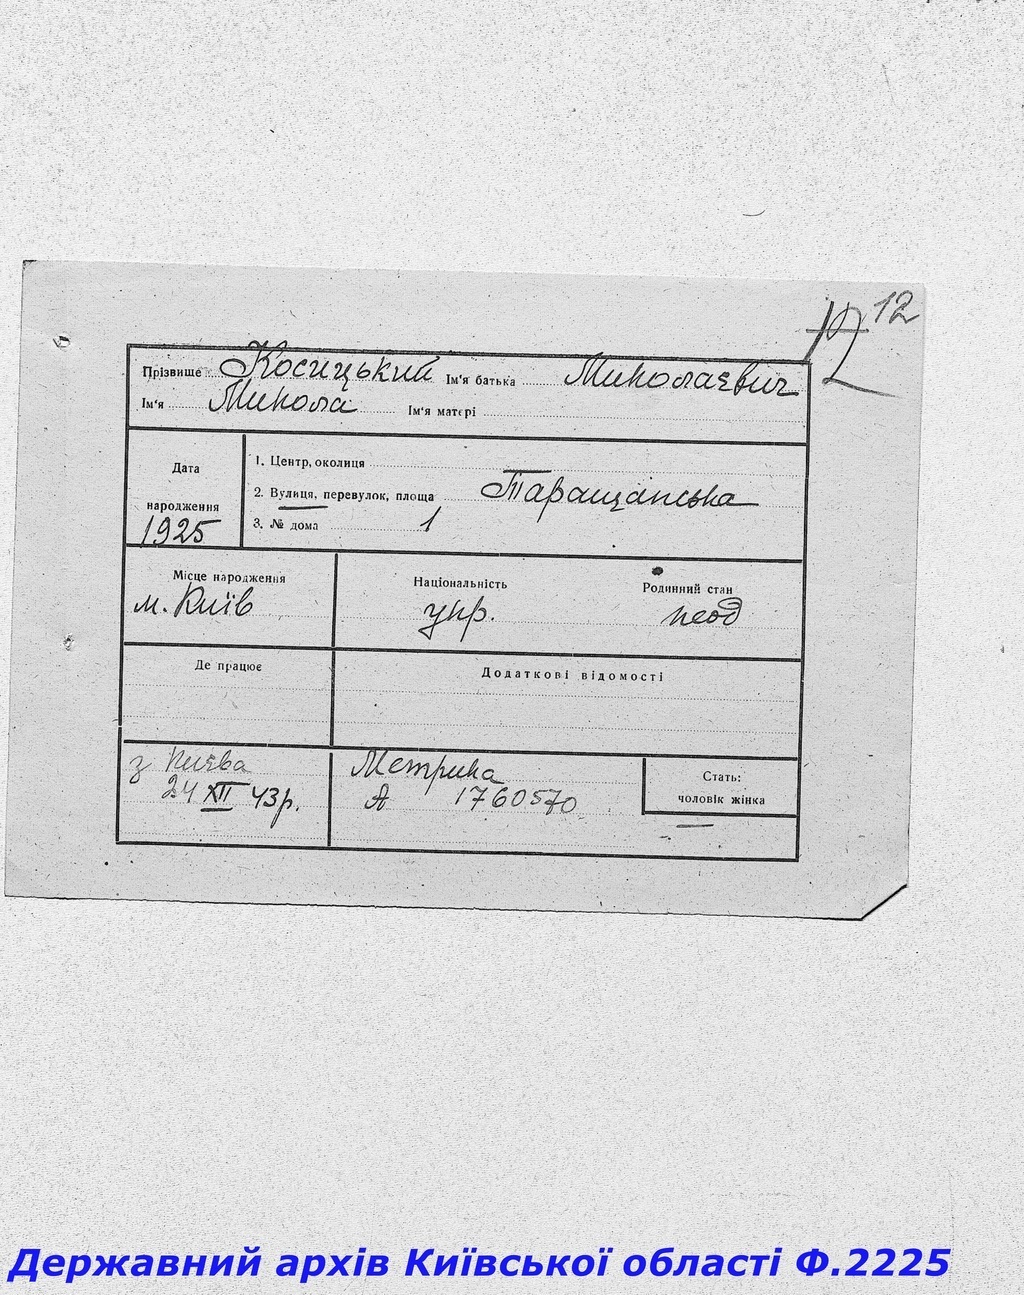 12 12
Прізвище Косицький Ім'я батька Миколаєвич
Ім'я Микола Ім'я матері
Дата народження 1925
1. Центр, околиця
2. Вулиця, перевулок, площа Таращанська
3. № дома 1
Місце народження
м. Київ
Національність
укр.
Родинний стан
неод
Де працює
Додаткові відомості
з Києва
24 XII 43р.
Метрика
А 1760570
Стать:
чоловік жінка
Державний архів Київської області Ф.2225